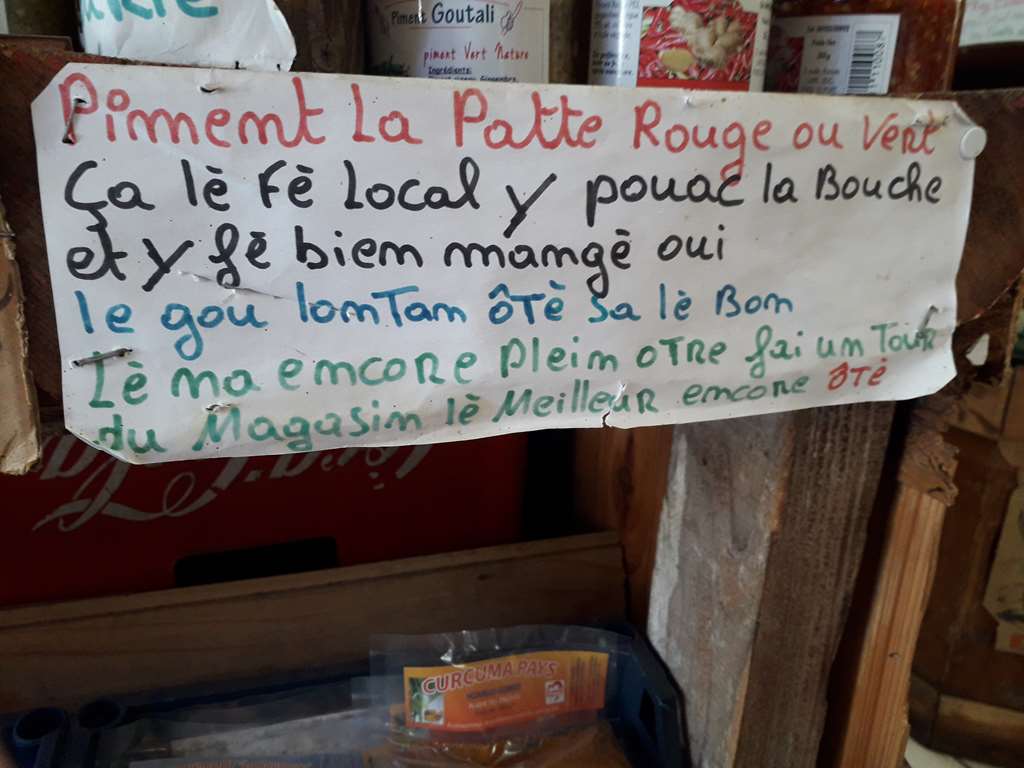 Piment Goutali
piment Vert Nature
Ingrédients:
Piment La Patte Rouge ou Vert
Ça lè Fè Local y pouac la Bouche
et y fè bien mangè oui
le gou lonTan ôTè sa lè Bon
Lè na encore Plein oTre fai un Tour
du Magasin lè Meilleur encore ôTè
CURCUMA PAYS